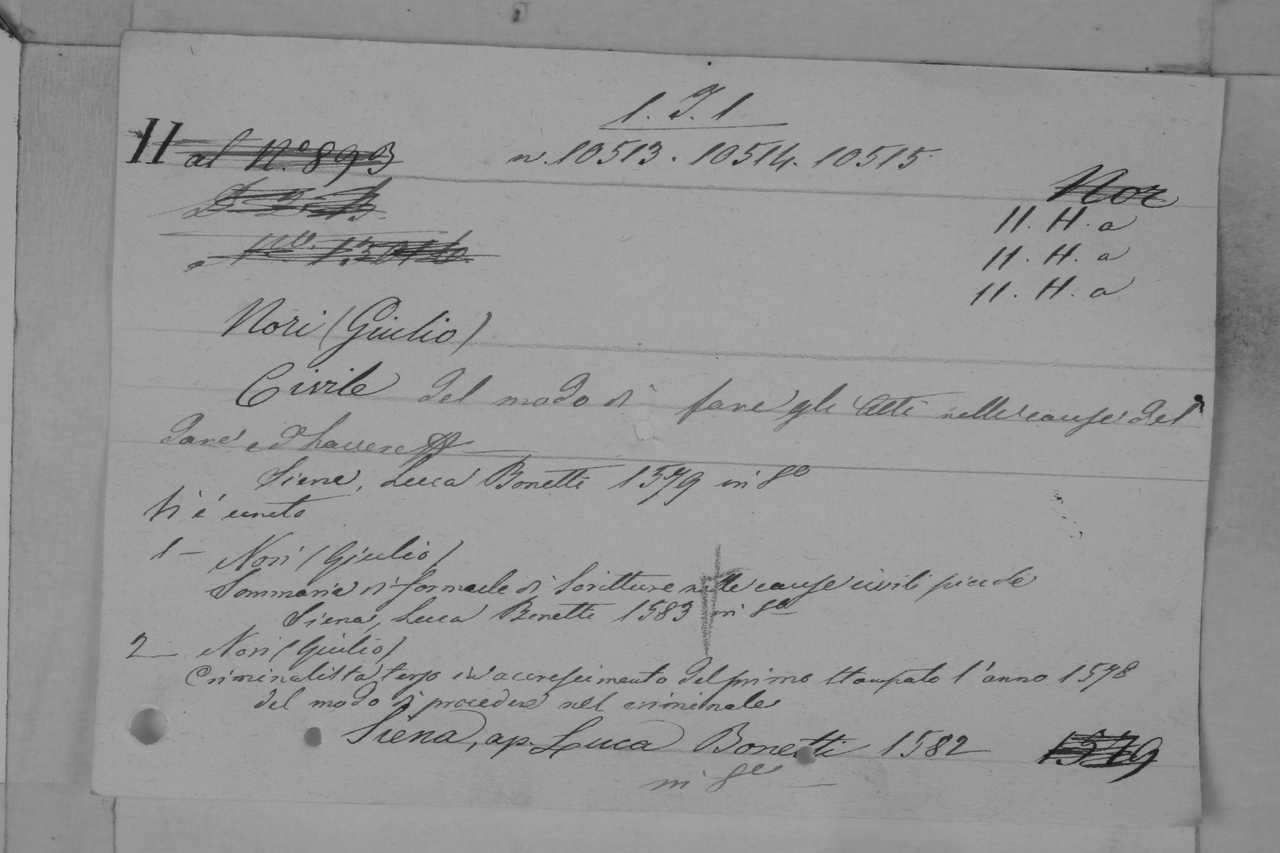 1. J. 1
H al N.º 893 n. 10513. 10514. 10515
Nor
11. H. a
11. H. a
11. H. a
Nori (Giulio)
Civile del modo di fare gli Atti nelle cause del
dare ed havere
Siena, Luca Bonetti 1579 in 8º
Vi è unito
1 — Nori (Giulio)
Sommario di formule di Scritture nelle cause civili piccole
Siena, Luca Bonetti 1583 in 8º
2 — Nori (Giulio)
Criminalista terzo ed accrescimento del primo stampato l'anno 1578
del modo di procedere nel criminale
Siena, ap. Luca Bonetti 1582 1579
in 8º